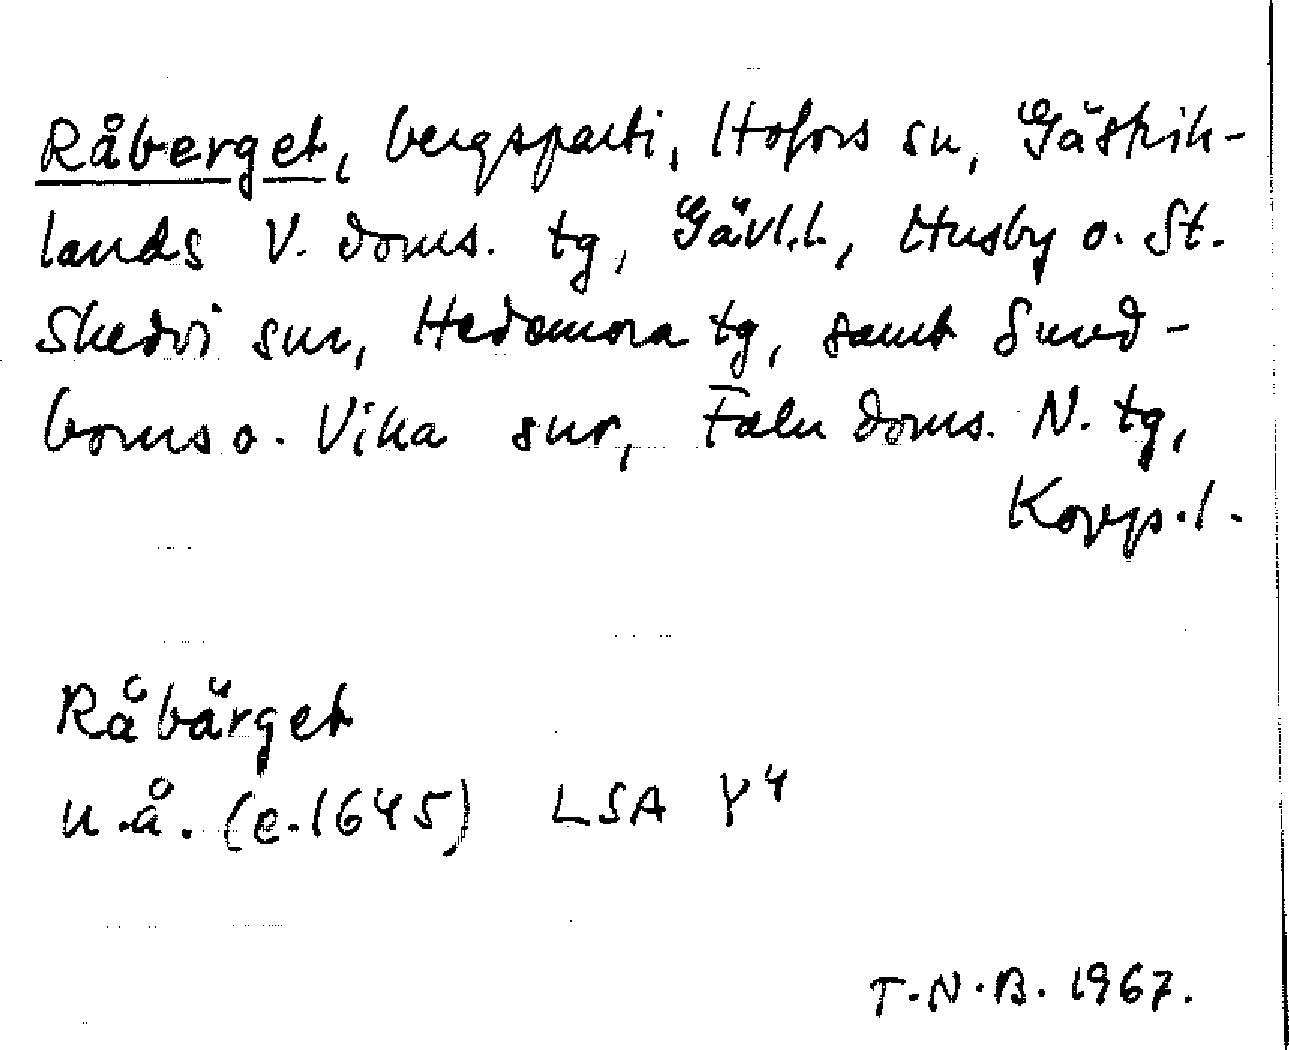 Råberget, bergsparti, Hofors sn, Gästrik-
lands V. doms. tg, Gävl.l., Husby o. St.
Skedvi snr, Hedemora tg, samt Sund-
borns o. Vika snr, Falu doms. N. tg,
Kopp.l.
Råbärget
u.å. (c.1645) LSA Y4
T.N.B. 1967.